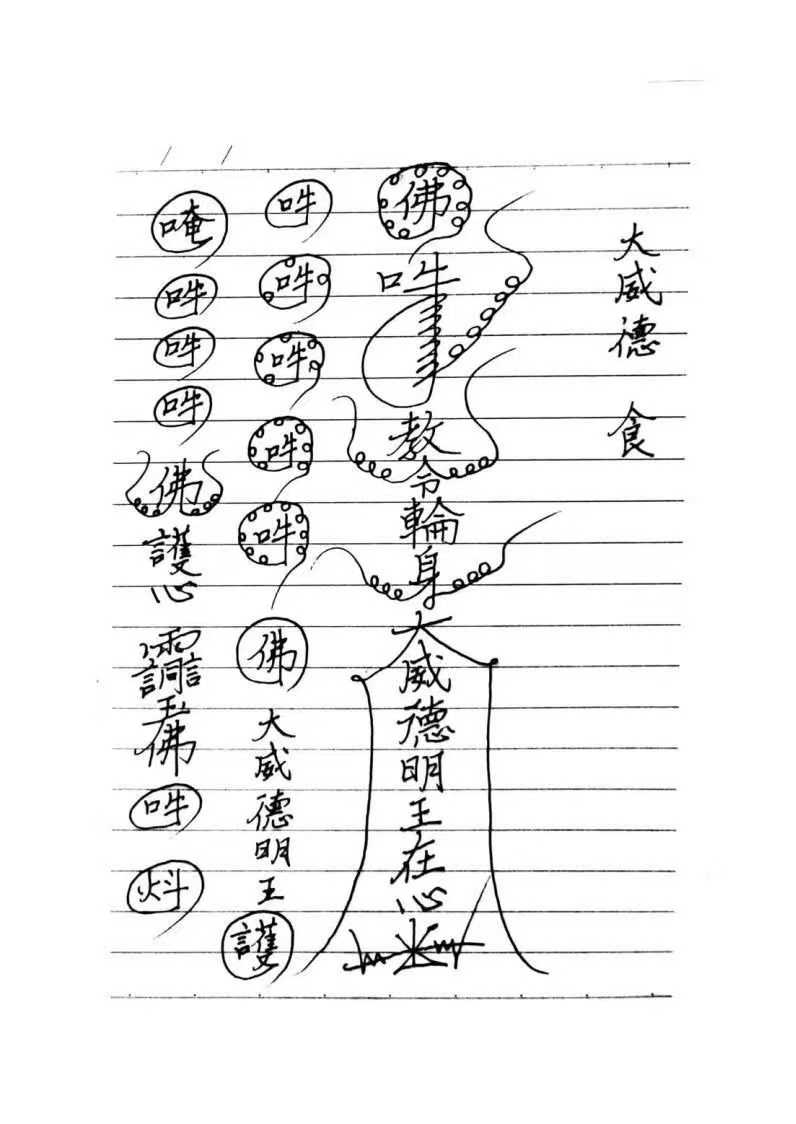 大威德 食
佛吽教令輪身大威德明王在心
吽吽吽吽吽佛大威德明王護
唵吽吽吽佛護心佛吽